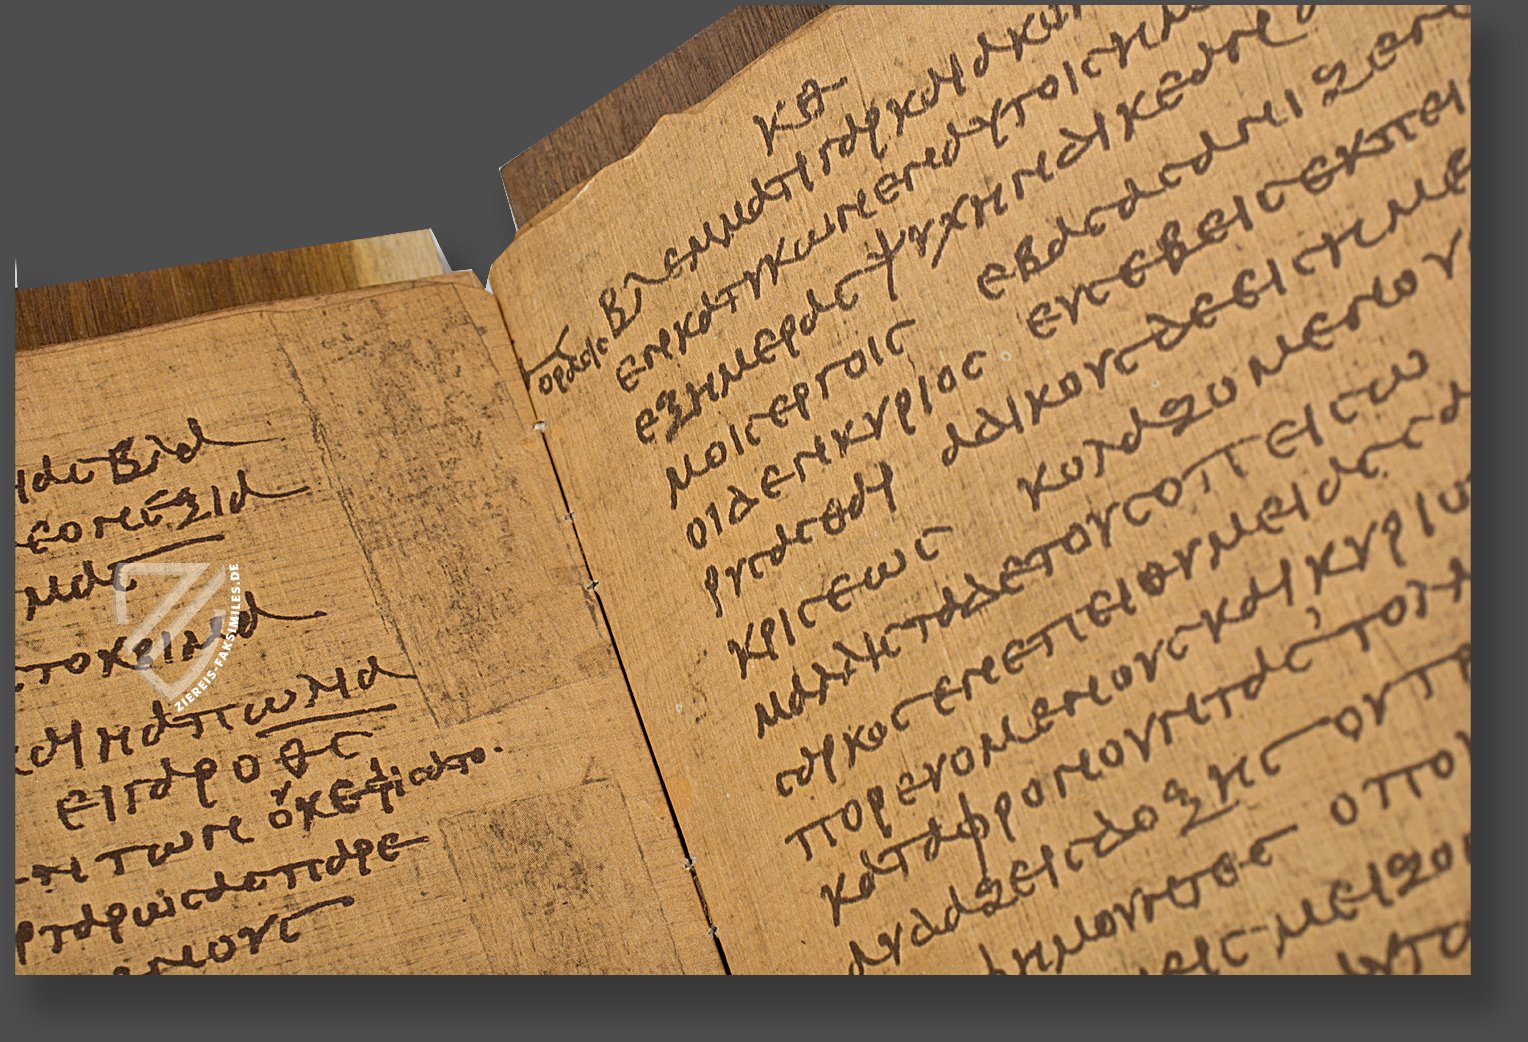 αι βια
εονεξια
μας
το κριμα
και η απωλια
ει γαρ ο θς
ντων ουκ εφισατο
ρταρωσασπαρε
μενους
κθ
ορασις
βλεμματι γαρ και ακο
ενκατυκων εν εαυτοις ημ
εξ ημερας ψυχην δικεαν
μοις εργοις εβασανιζεν
οιδεν κυριος ευσεβεις εκ πει
ρυσασθαι αδικους δε εις ημε
κρισεως κολαζομενου
μαλλιστα δε τους οπεισω
σαρκος εν επειθυμειας σα
πορευομενους και κυριο
καταφρονουντας τολ
αυαδζεις δοξης ου τρ
ημουντες οπου
εις μειζο
ZIEREIS-FAKSIMILES.DE